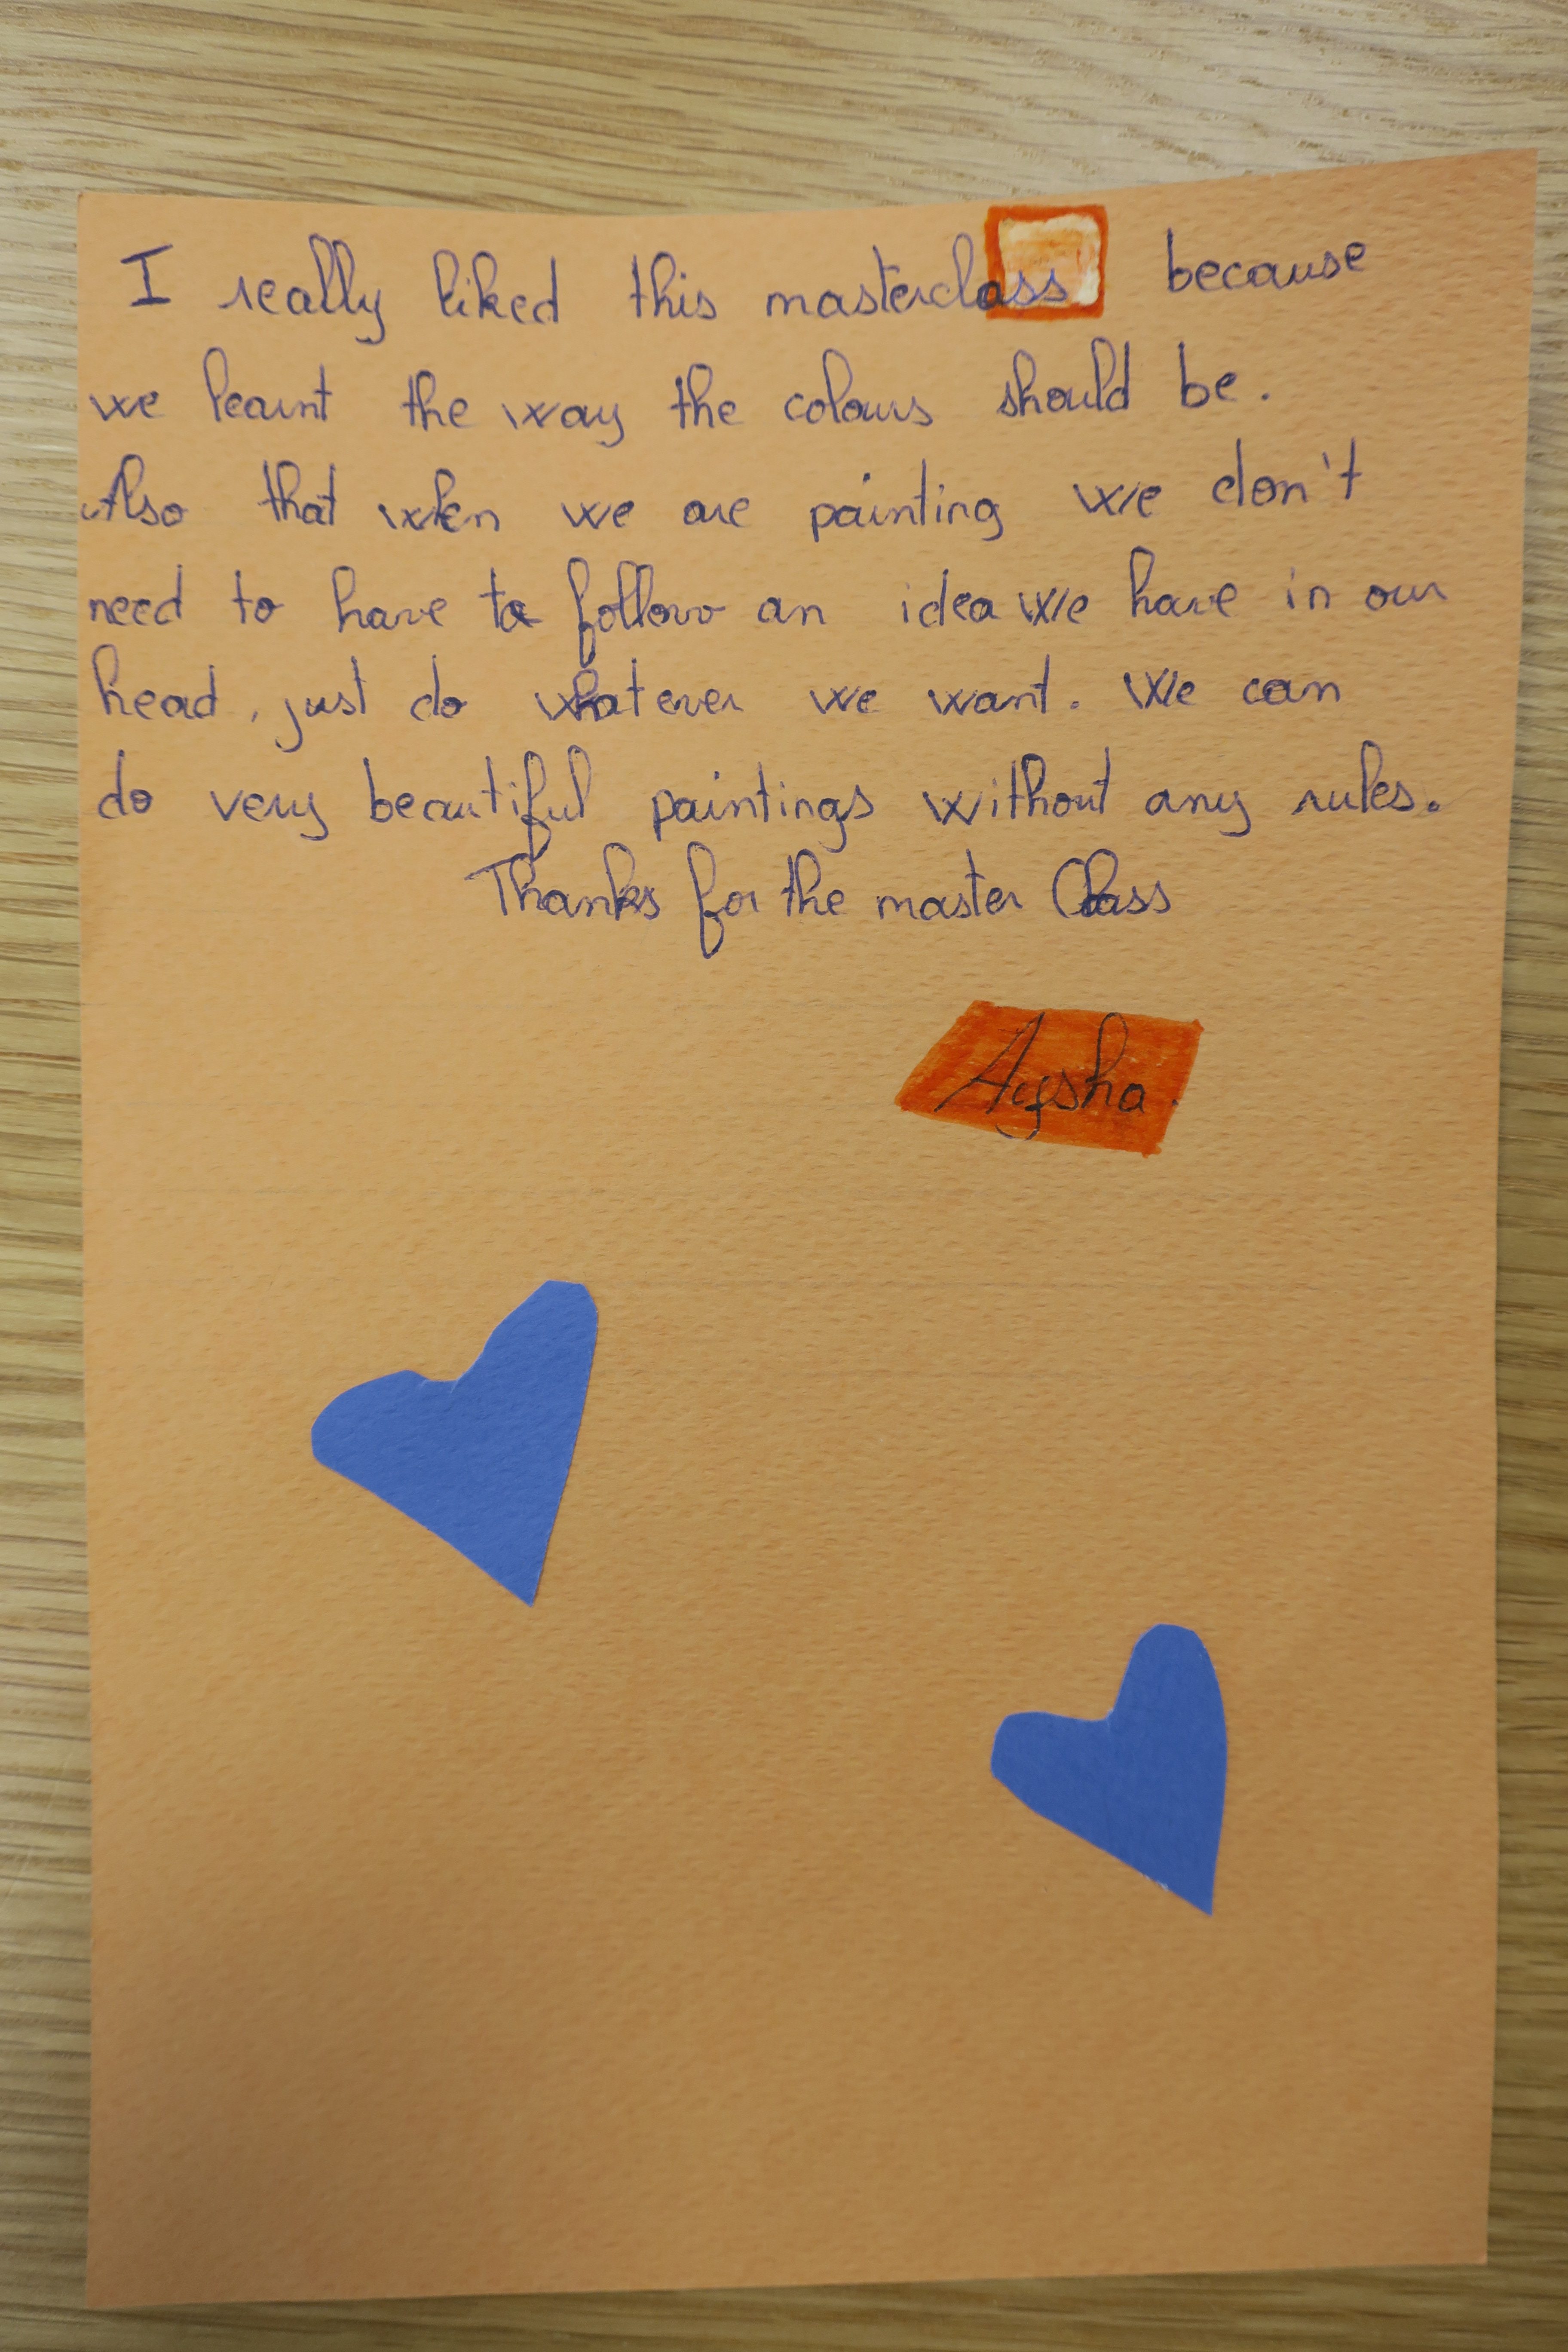 I really liked this masterclass because
we learnt the way the colours should be.
Also that when we are painting we don't
need to have to follow an idea we have in our
head, just do whatever we want. We can
do very beautiful paintings without any rules.
Thanks for the master Class
Aysha.